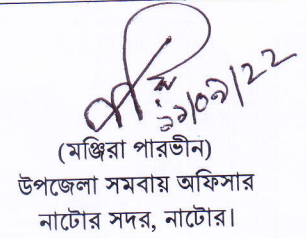 ২১/০৯/22
(মঞ্জিরা পারভীন)
উপজেলা সমবায় অফিসার
নাটোর সদর, নাটোর।